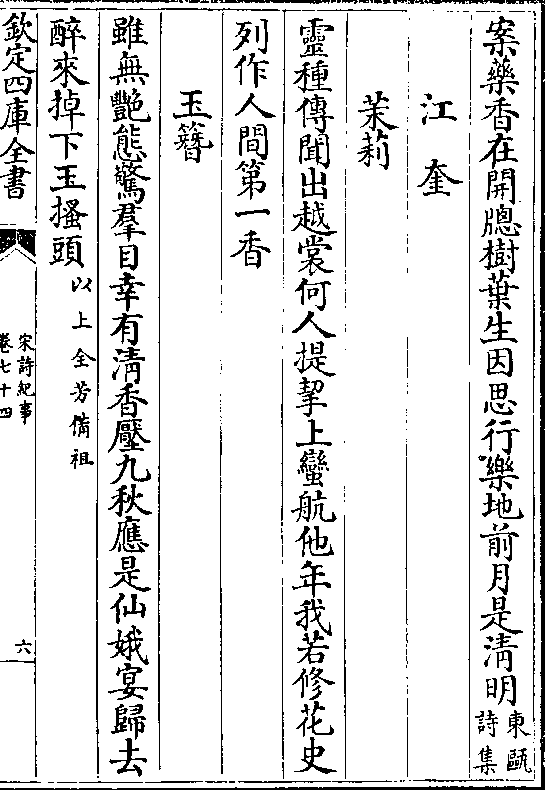 案藥香在開牕樹葉生因思行樂地前月是清明東甌詩集
江奎
茉莉
靈種傳聞出越裳何人提挈上蠻航他年我若修花史
列作人間第一香
玉簪
雖無艷態驚羣目幸有清香壓九秋應是仙娥宴歸去
醉來掉下玉搔頭以上全芳備祖
欽定四庫全書
宋詩紀事
卷七十四
六